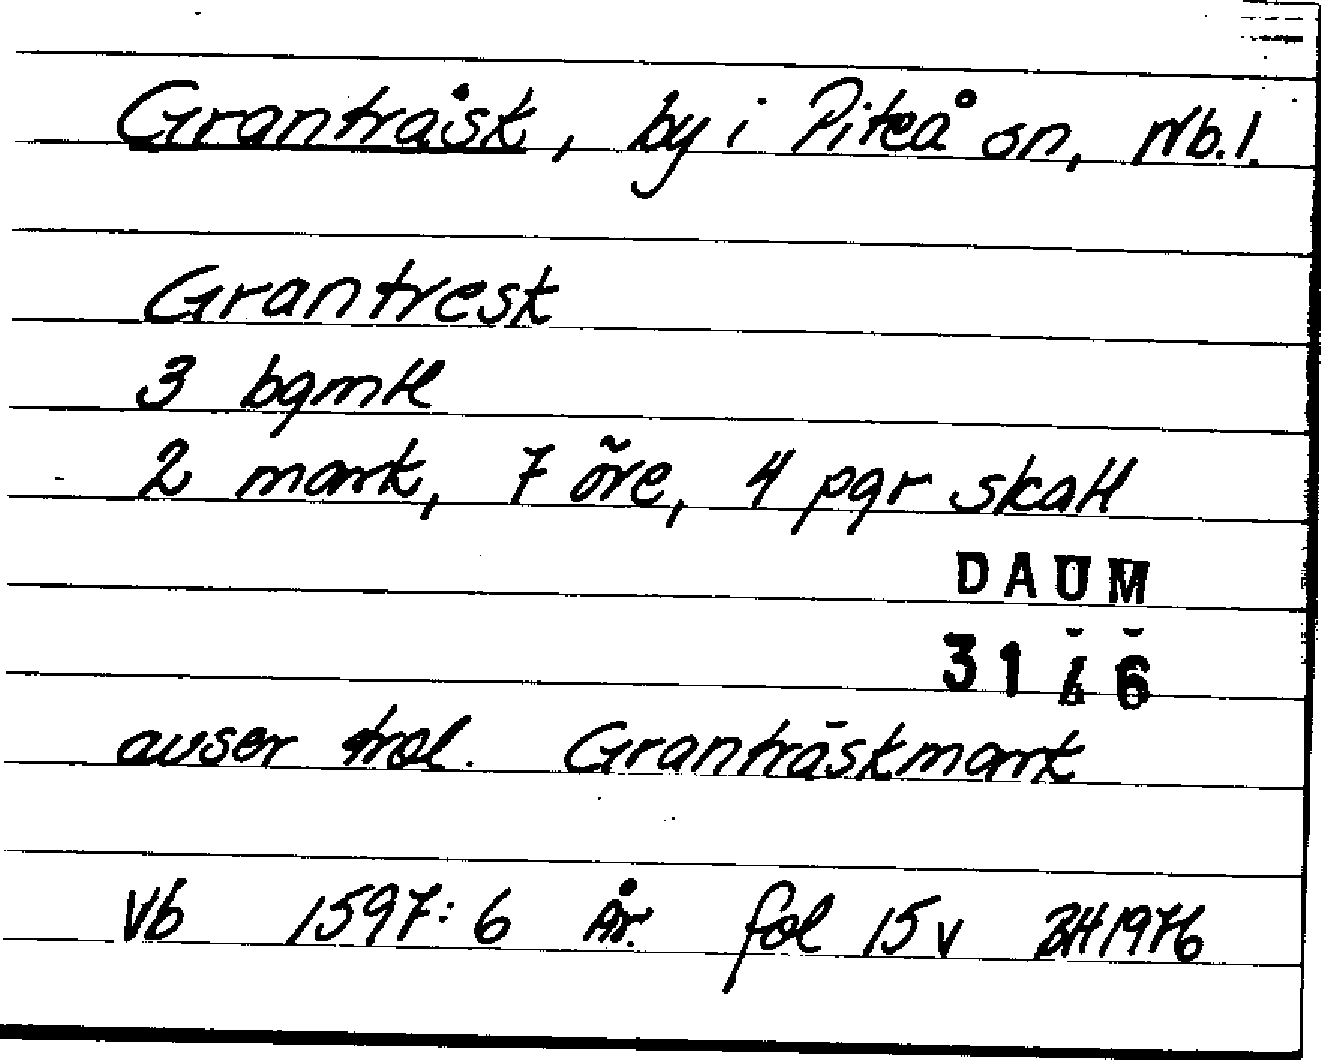 Granträsk, by i Piteå sn, Nb.l.
Grantresk
3 bgmtl
2 mark, 7 öre, 4 pgr skatt
DAUM
31
avser trol. Granträskmark
Vb 1597:6 År. fol 15v BH 1976